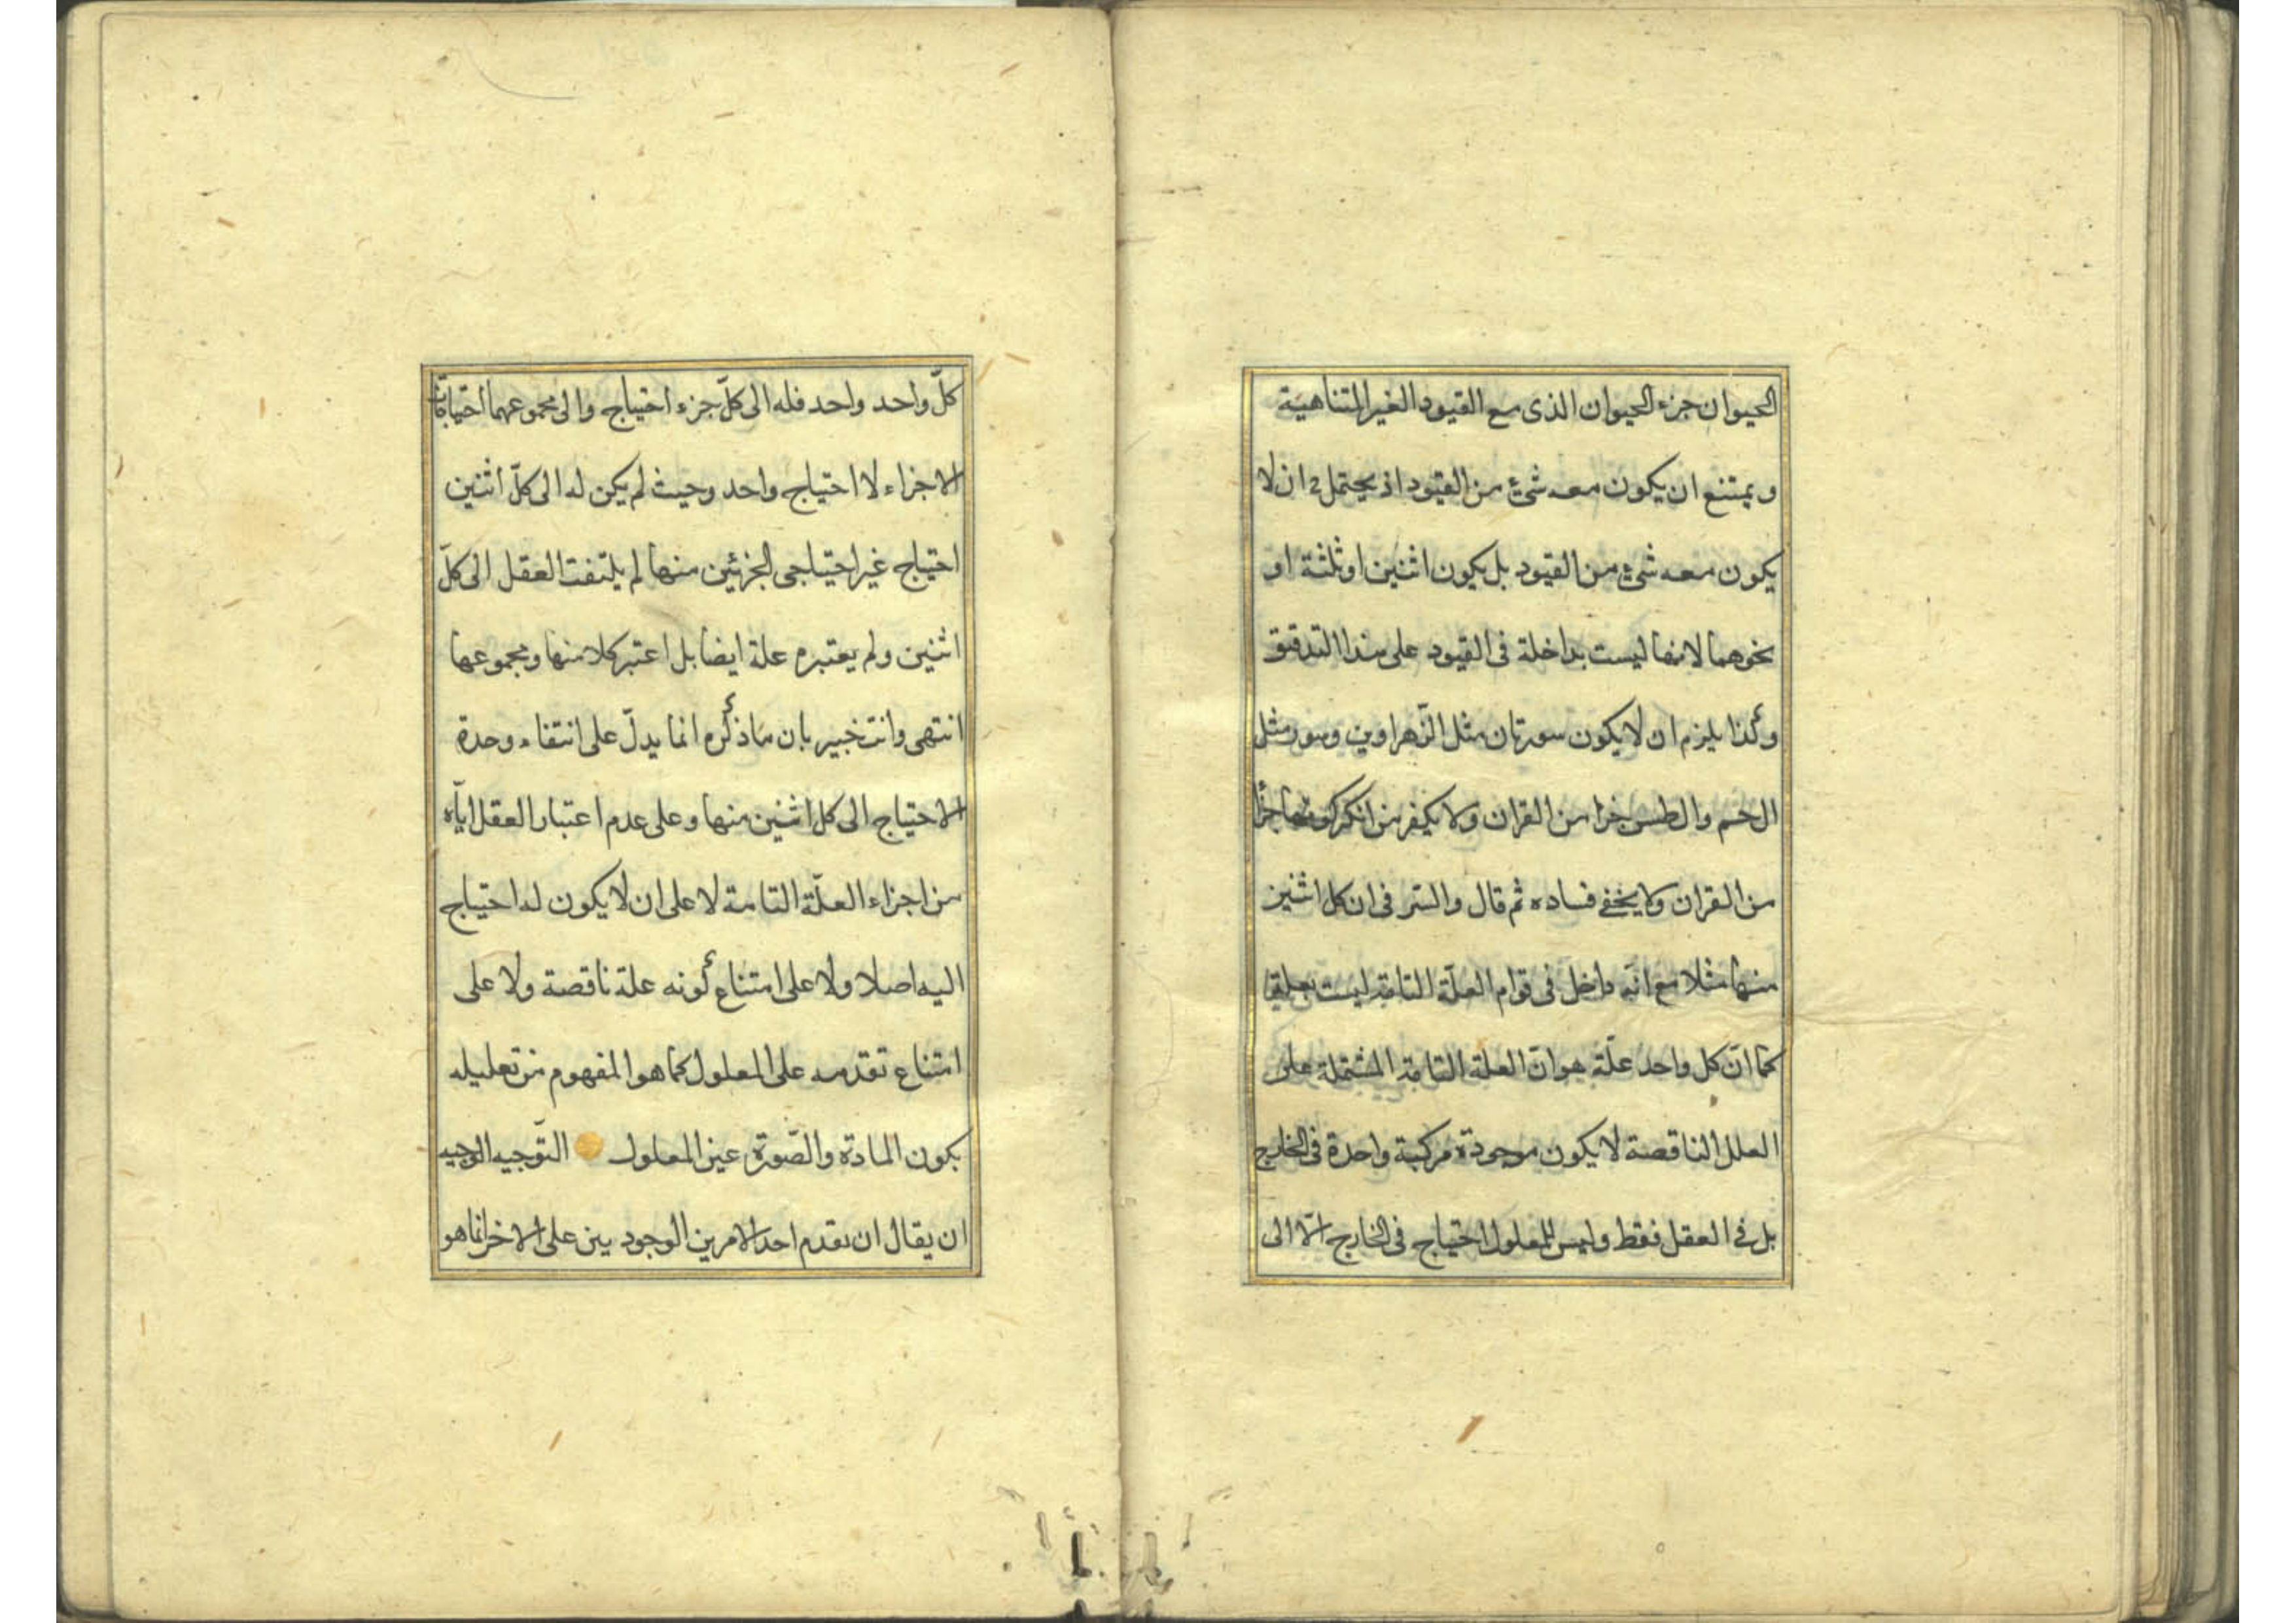 الحيوان جزء الحيوان الذى مع القيود الغير المتناهية
ويمتنع ان يكون معه شئ من القيود اذ يحتمل ح ان لا
يكون معه شئ من القيود بل يكون اثنين او ثلثة او
نحوهما لانها ليست بداخلة فى القيود على هذا التدقيق
وكذا يلزم ان لا يكون سورتان مثل الزهراوين وسور مثل
ال حم والطس جزا من القران ولا يكفر من انكر كونها جزا
من القران ولا يخفى فساده ثم قال والسر فى ان كل اثنين
منها مثلا مع انه داخل فى قوام العلّة التامة ليست بعلة
كما انّ كل واحد علّة هو انّ العلة التامة المشتملة على
العلل الناقصة لا يكون موجودة مركبة واحدة فى الخارج
بل فى العقل فقط وليس للمعلول احتياج فى الخارج الّا الى
كلّ واحد واحد فله الى كلّ جزء احتياج والى مجموعهما احتياجات
الاجزاء لا احتياج واحد وحيث لم يكن له الى كلّ اثنين
احتياج غير احتياجى الجزئين منها لم يلتفت العقل الى كلّ
اثنين ولم يعتبره علة ايضا بل اعتبر كلا منها ومجموعها
انتهى وانت خبير بان ما ذكره انما يدلّ على انتفاء وحدة
الاحتياج الى كل اثنين منها وعلى عدم اعتبار العقل ايّاه
من اجزاء العلّة التامة لا على ان لا يكون له احتياج
اليه اصلا ولا على امتناع كونه علة ناقصة ولا على
امتناع تقدمه على المعلول كما هو المفهوم من تعليله
بكون المادة والصّورة عين المعلول التّوجيه الوجيه
ان يقال ان تقدم احد الامرين الوجوديين على الاخر انما هو